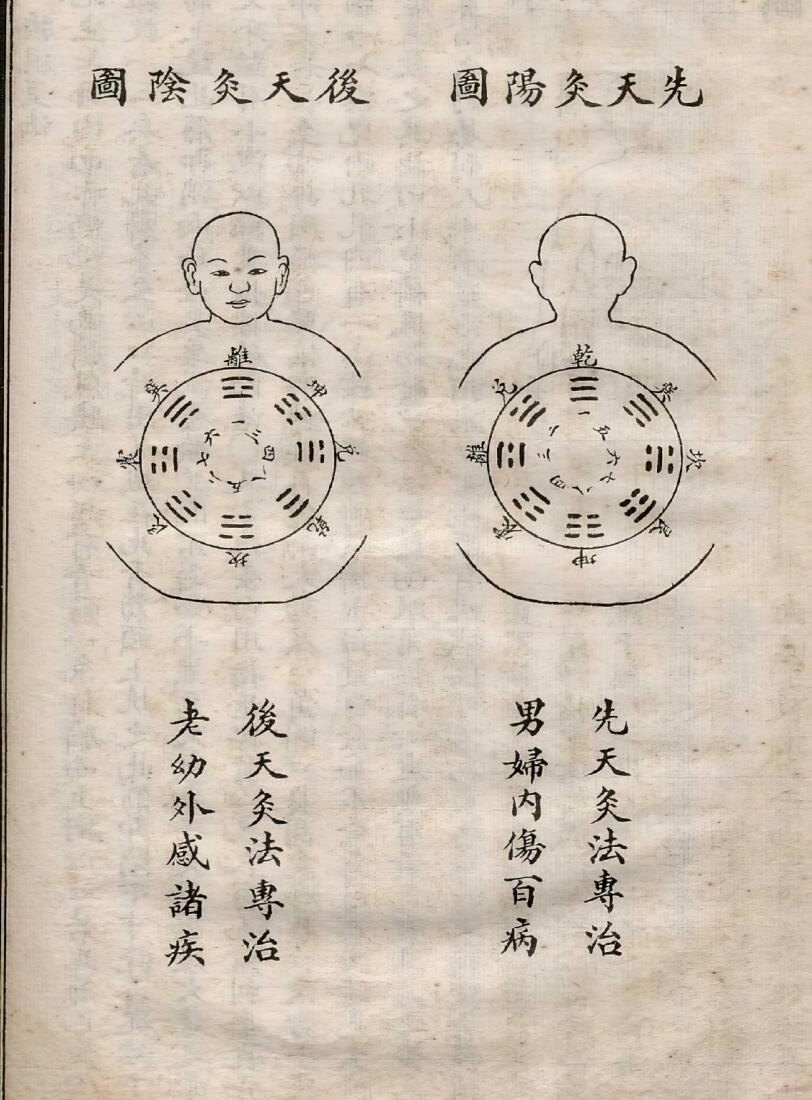 先天灸陽圖
乾
巽
坎
艮
坤
震
離
兌
一
五
六
七
八
四
三
二
先天灸法專治
男婦内傷百病
後天灸陰圖
離
坤
兌
乾
坎
艮
震
巽
一
後天灸法專治
老幼外感諸疾